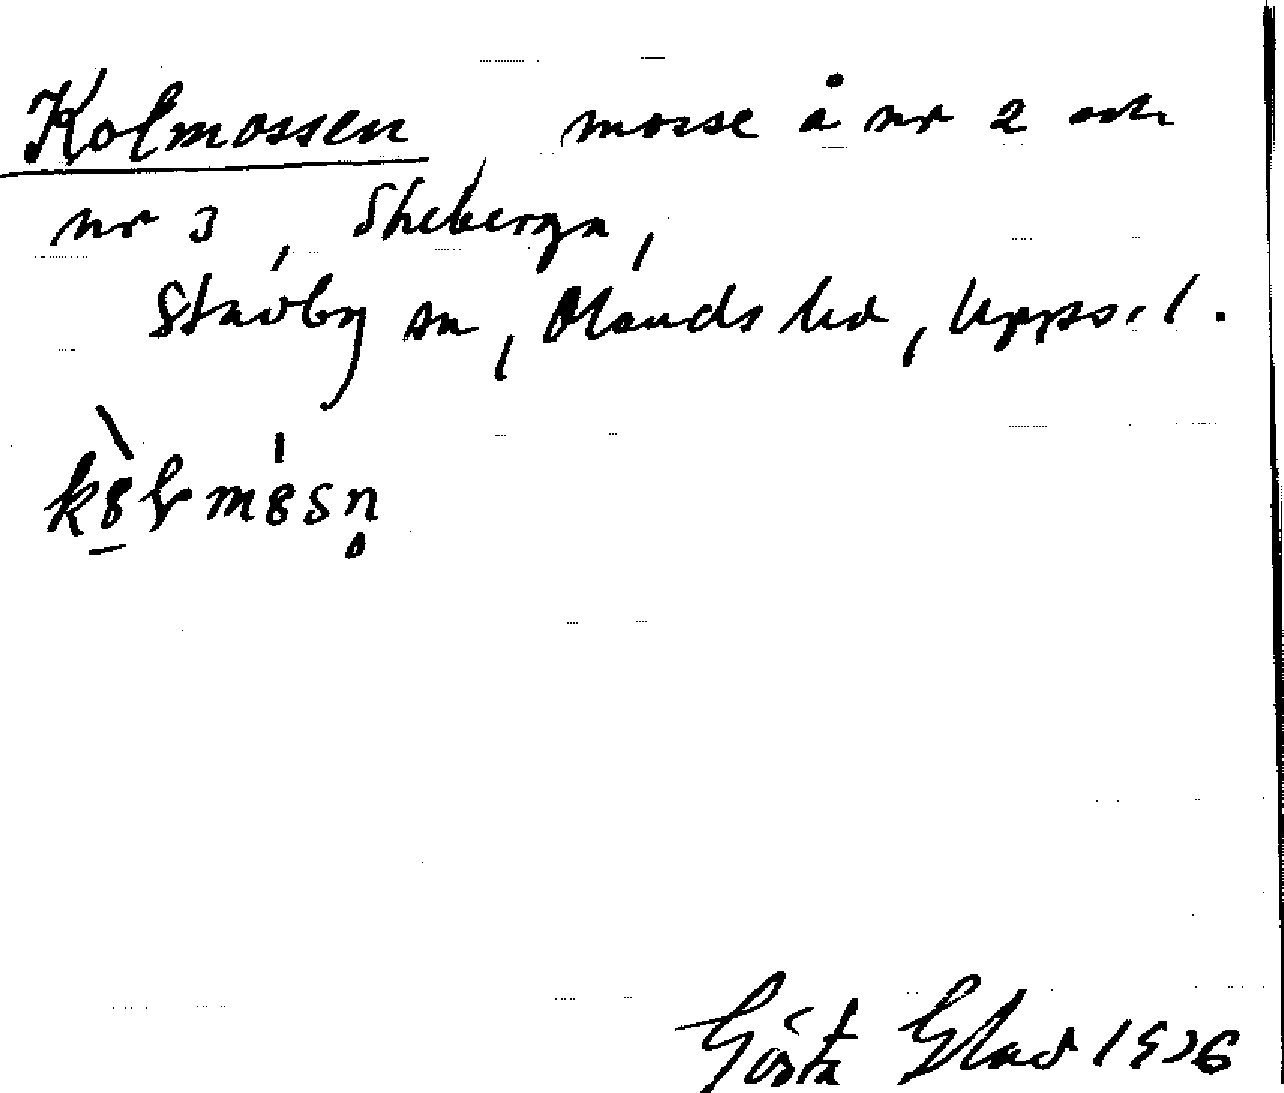 Kolmossen, mosse å nr 2 och
nr 3, Skeberga,
Stavby sn, Olands hd, Upps. l.
Gösta Glad 1936